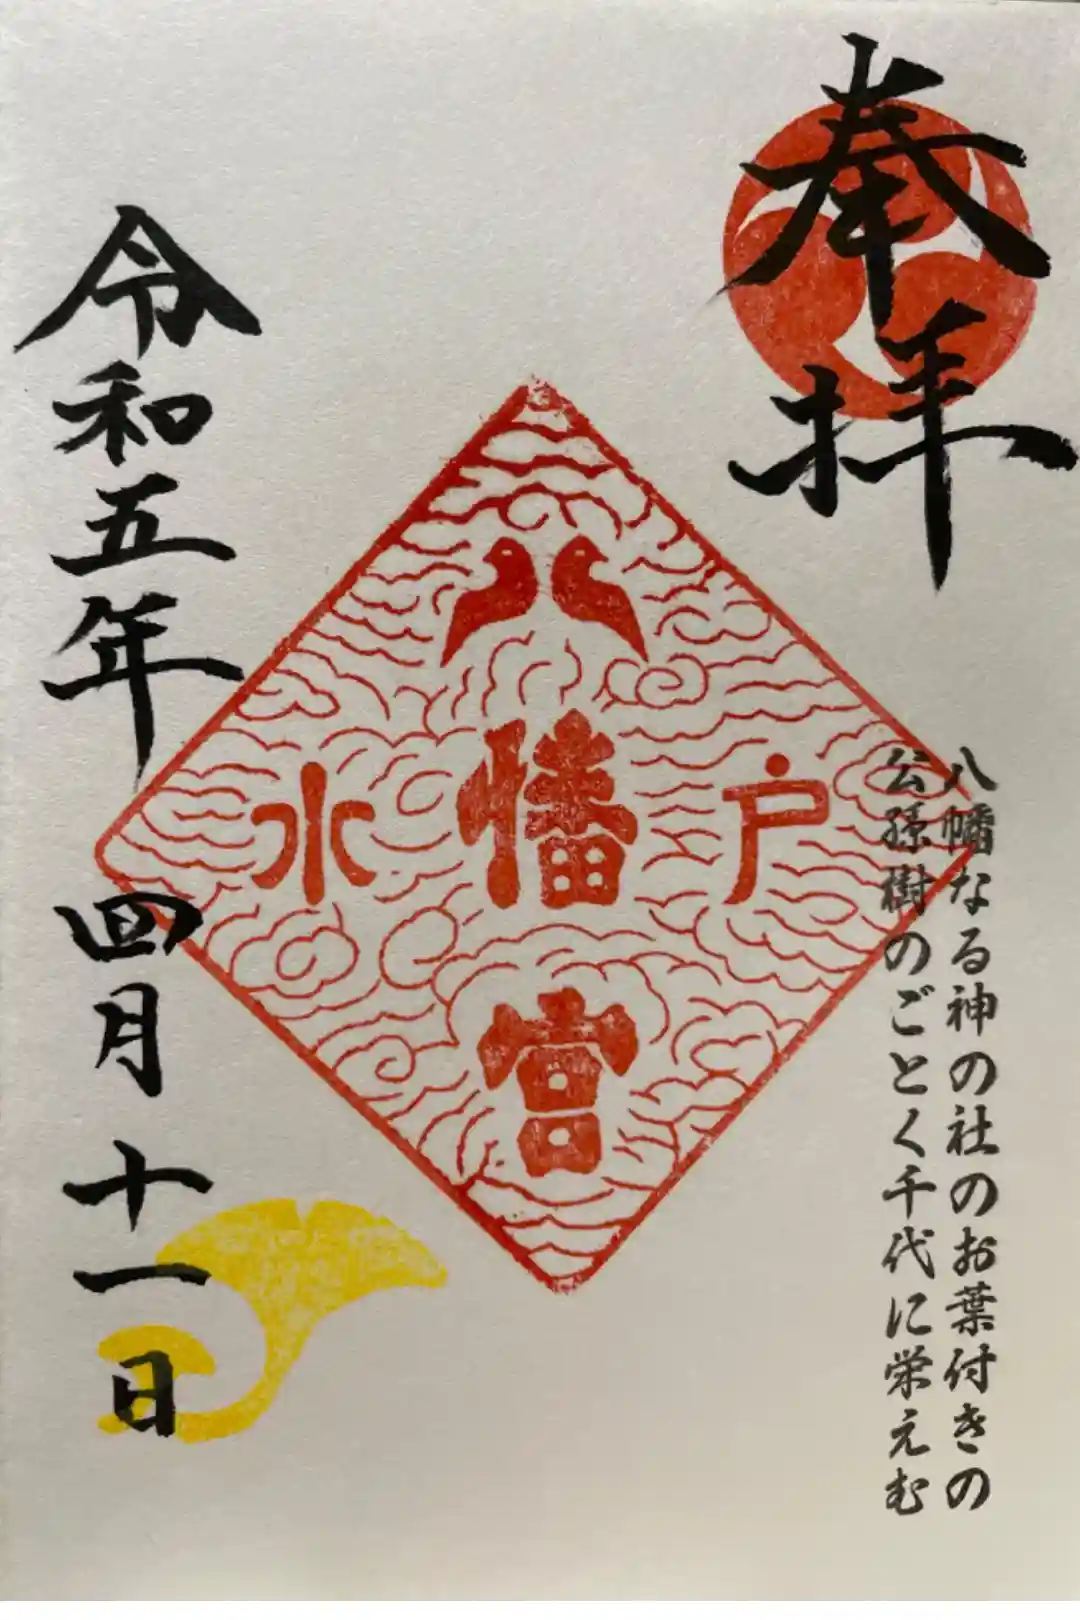 奉拝
八幡なる神の社のお葉付きの
公孫樹のごとく千代に栄えむ
水戸
八幡宮
令和五年四月十一日